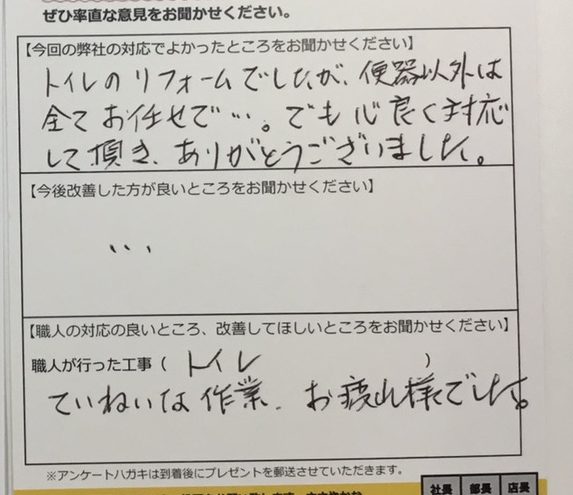 ぜひ率直な意見をお聞かせください。
【今回の弊社の対応でよかったところをお聞かせください】
トイレのリフォームでしたが、便器以外は
全てお任せで…。でも心良く対応
して頂き、ありがとうございました。
【今後改善した方が良いところをお聞かせください】
…
【職人の対応の良いところ、改善してほしいところをお聞かせください】
職人が行った工事（ トイレ ）
ていねいな作業、お疲れ様でした。
※アンケートハガキは到着後にプレゼントを郵送させていただきます。
社長 部長 店長